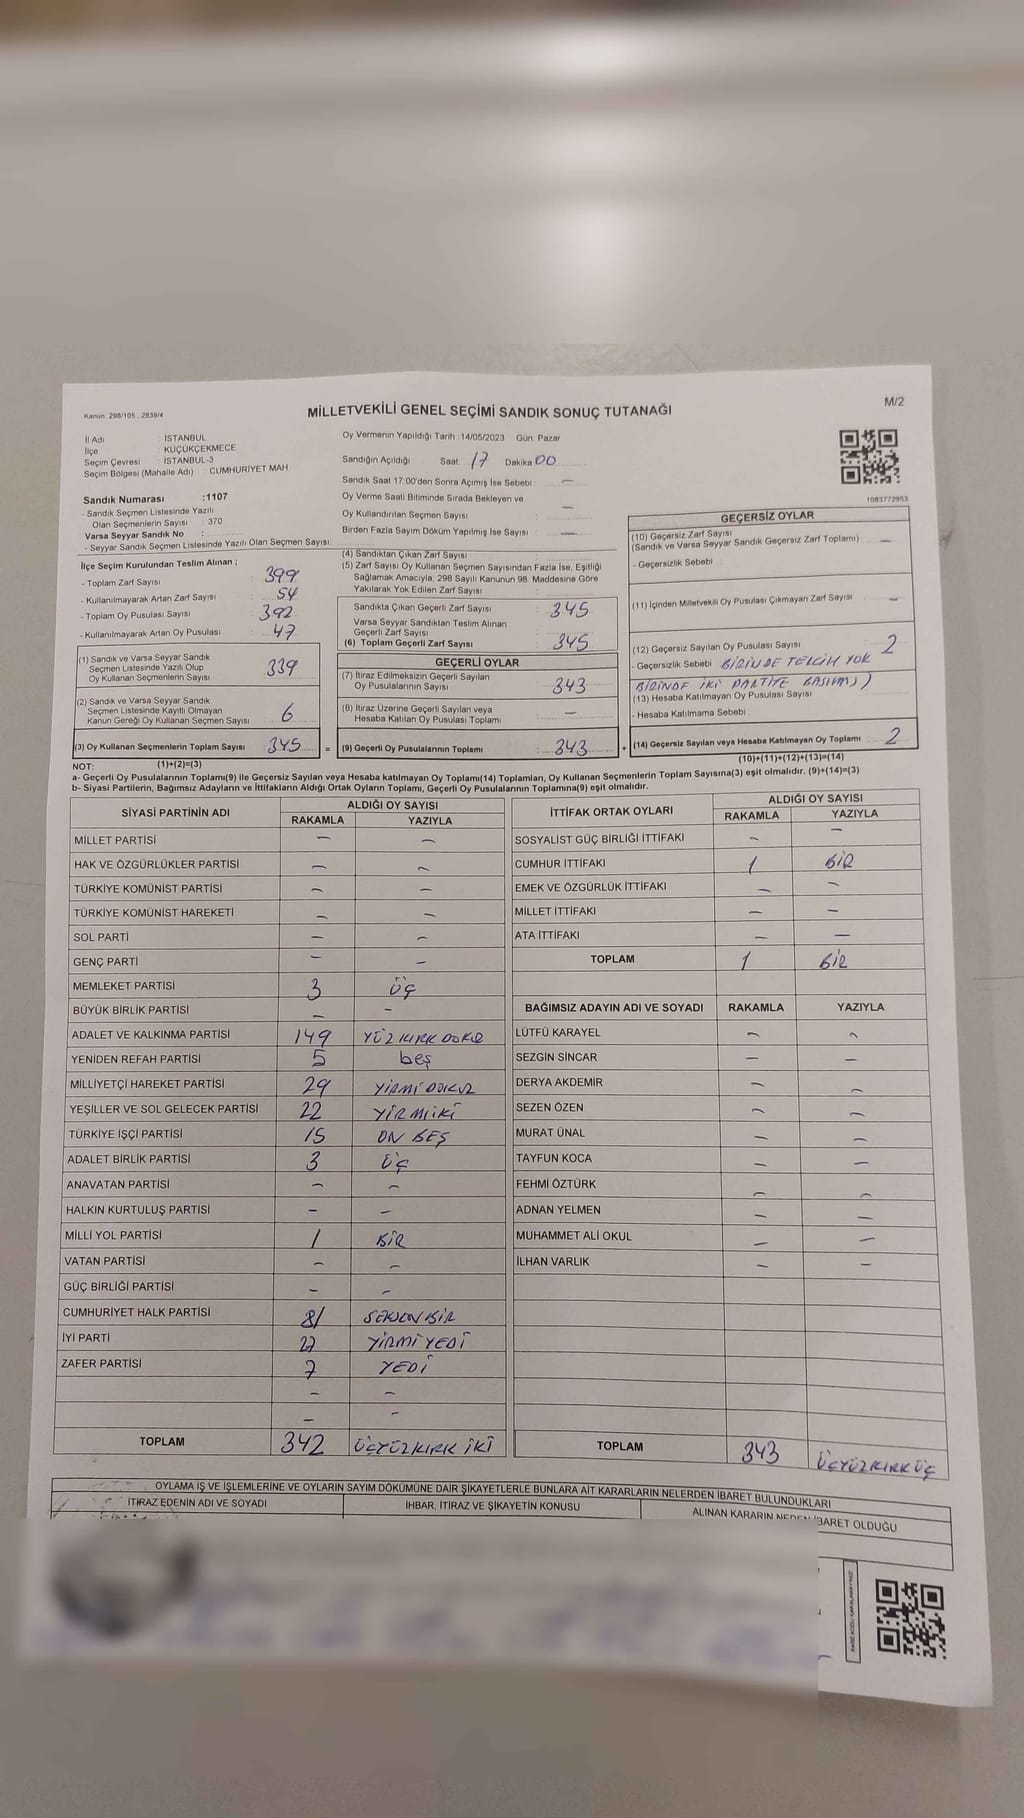 Kanun: 298/105 , 2839/4
MİLLETVEKİLİ GENEL SEÇİMİ SANDIK SONUÇ TUTANAĞI
M/2
İl Adı : İSTANBUL
İlçe : KÜÇÜKÇEKMECE
Seçim Çevresi : İSTANBUL-3
Seçim Bölgesi (Mahalle Adı) CUMHURİYET MAH
Sandık Numarası :1107
- Sandık Seçmen Listesinde Yazılı
Olan Seçmenlerin Sayısı : 370
Varsa Seyyar Sandık No :
- Seyyar Sandık Seçmen Listesinde Yazılı Olan Seçmen Sayısı:
Oy Vermenin Yapıldığı Tarih :14/05/2023 Gün: Pazar
Sandığın Açıldığı Saat 17 Dakika 00
Sandık Saat 17:00'den Sonra Açımış İse Sebebi : —
Oy Verme Saati Bitiminde Sırada Bekleyen ve
Oy Kullandırılan Seçmen Sayısı : —
Birden Fazla Sayım Döküm Yapılmış İse Sayısı : —
1083772953
İlçe Seçim Kurulundan Teslim Alınan ;
- Toplam Zarf Sayısı : 399
- Kullanılmayarak Artan Zarf Sayısı : 54
- Toplam Oy Pusulası Sayısı : 392
- Kullanılmayarak Artan Oy Pusulası : 47
(1) Sandık ve Varsa Seyyar Sandık
Seçmen Listesinde Yazılı Olup
Oy Kullanan Seçmenlerin Sayısı : 339
(2) Sandık ve Varsa Seyyar Sandık
Seçmen Listesinde Kayıtlı Olmayan
Kanun Gereği Oy Kullanan Seçmen Sayısı : 6
(3) Oy Kullanan Seçmenlerin Toplam Sayısı : 345
(4) Sandıktan Çıkan Zarf Sayısı :
(5) Zarf Sayısı Oy Kullanan Seçmen Sayısından Fazla İse, Eşitliği
Sağlamak Amacıyla, 298 Sayılı Kanunun 98. Maddesine Göre
Yakılarak Yok Edilen Zarf Sayısı :
Sandıkta Çıkan Geçerli Zarf Sayısı : 345
Varsa Seyyar Sandıktan Teslim Alınan
Geçerli Zarf Sayısı :
(6) Toplam Geçerli Zarf Sayısı : 345
GEÇERLİ OYLAR
(7) İtiraz Edilmeksizin Geçerli Sayılan
Oy Pusulalarının Sayısı : 343
(8) İtiraz Üzerine Geçerli Sayılan veya
Hesaba Katılan Oy Pusulası Toplamı : —
= (9) Geçerli Oy Pusulalarının Toplamı : 343
GEÇERSİZ OYLAR
(10) Geçersiz Zarf Sayısı
(Sandık ve Varsa Seyyar Sandık Geçersiz Zarf Toplamı) : —
- Geçersizlik Sebebi :
(11) İçinden Milletvekili Oy Pusulası Çıkmayan Zarf Sayısı : —
(12) Geçersiz Sayılan Oy Pusulası Sayısı : 2
- Geçersizlik Sebebi : BİRİNDE TERCİH YOK
BİRİNDE İKİ PARTİYE BASILMIŞ)
(13) Hesaba Katılmayan Oy Pusulası Sayısı
- Hesaba Katılmama Sebebi :
+ (14) Geçersiz Sayılan veya Hesaba Katılmayan Oy Toplamı : 2
NOT: (1)+(2)=(3)
(10)+(11)+(12)+(13)=(14)
a- Geçerli Oy Pusulalarının Toplamı(9) ile Geçersiz Sayılan veya Hesaba katılmayan Oy Toplamı(14) Toplamları, Oy Kullanan Seçmenlerin Toplam Sayısına(3) eşit olmalıdır. (9)+(14)=(3)
b- Siyasi Partilerin, Bağımsız Adayların ve İttifakların Aldığı Ortak Oyların Toplamı, Geçerli Oy Pusulalarının Toplamına(9) eşit olmalıdır.
SİYASİ PARTİNİN ADI ALDIĞI OY SAYISI
RAKAMLA YAZIYLA
MİLLET PARTİSİ — —
HAK VE ÖZGÜRLÜKLER PARTİSİ — —
TÜRKİYE KOMÜNİST PARTİSİ — —
TÜRKİYE KOMÜNİST HAREKETİ — —
SOL PARTİ — —
GENÇ PARTİ — —
MEMLEKET PARTİSİ 3 ÜÇ
BÜYÜK BİRLİK PARTİSİ — —
ADALET VE KALKINMA PARTİSİ 149 YÜZ KIRK DOKUZ
YENİDEN REFAH PARTİSİ 5 beş
MİLLİYETÇİ HAREKET PARTİSİ 29 YİRMİ DOKUZ
YEŞİLLER VE SOL GELECEK PARTİSİ 22 YİRMİİKİ
TÜRKİYE İŞÇİ PARTİSİ 15 ON BEŞ
ADALET BİRLİK PARTİSİ 3 ÜÇ
ANAVATAN PARTİSİ — —
HALKIN KURTULUŞ PARTİSİ — —
MİLLİ YOL PARTİSİ 1 BİR
VATAN PARTİSİ — —
GÜÇ BİRLİĞİ PARTİSİ — —
CUMHURİYET HALK PARTİSİ 81 SEKSEN BİR
İYİ PARTİ 27 YİRMİ YEDİ
ZAFER PARTİSİ 7 YEDİ
— —
— —
TOPLAM 342 ÜÇYÜZ KIRK İKİ
İTTİFAK ORTAK OYLARI ALDIĞI OY SAYISI
RAKAMLA YAZIYLA
SOSYALİST GÜÇ BİRLİĞİ İTTİFAKI — —
CUMHUR İTTİFAKI 1 BİR
EMEK VE ÖZGÜRLÜK İTTİFAKI — —
MİLLET İTTİFAKI — —
ATA İTTİFAKI — —
TOPLAM 1 BİR
BAĞIMSIZ ADAYIN ADI VE SOYADI RAKAMLA YAZIYLA
LÜTFÜ KARAYEL — —
SEZGİN SİNCAR — —
DERYA AKDEMİR — —
SEZEN ÖZEN — —
MURAT ÜNAL — —
TAYFUN KOCA — —
FEHMİ ÖZTÜRK — —
ADNAN YELMEN — —
MUHAMMET ALİ OKUL — —
İLHAN VARLIK — —
TOPLAM 343 ÜÇYÜZ KIRK ÜÇ
OYLAMA İŞ VE İŞLEMLERİNE VE OYLARIN SAYIM DÖKÜMÜNE DAİR ŞİKAYETLERLE BUNLARA AİT KARARLARIN NELERDEN İBARET BULUNDUKLARI
İTİRAZ EDENİN ADI VE SOYADI İHBAR, İTİRAZ VE ŞİKAYETİN KONUSU ALINAN KARARIN NEDEN İBARET OLDUĞU